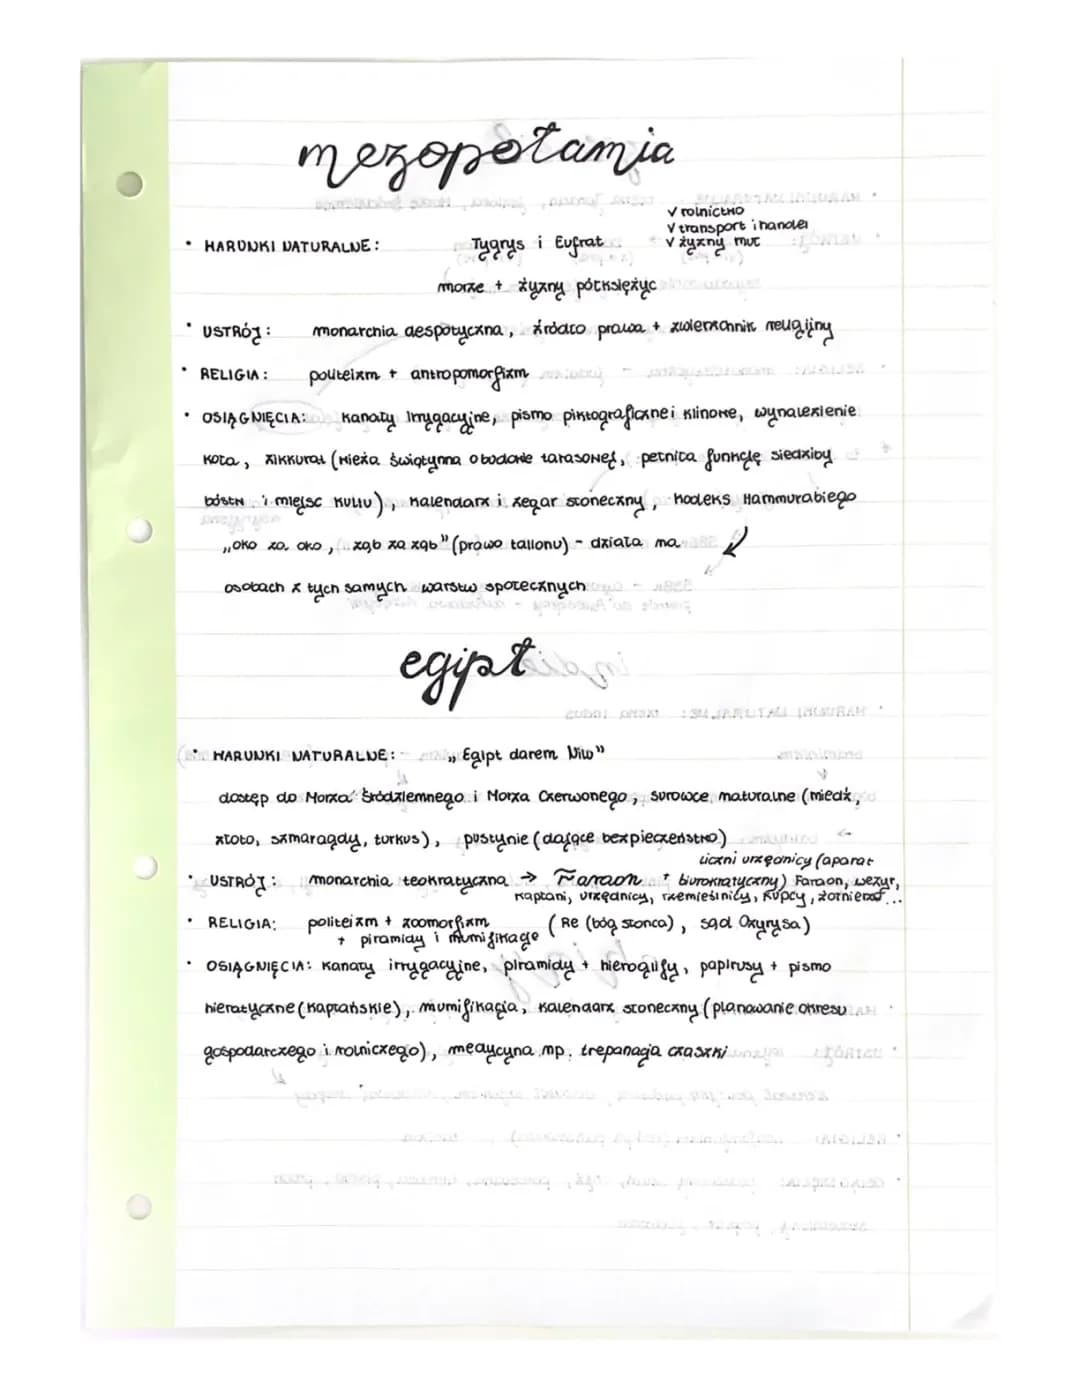 mezopotamia
v rolnictwo
v transport i handel
• WARUNKI NATURALNE: Tygrys i Eufrat v żyzny muł
morze + żyzny półksiężyc
• USTRÓJ: monarchia despotyczna, źródło prawa + zwierzchnik religijny
• RELIGIA: politeizm + antropomorfizm
• OSIĄGNIĘCIA: kanały irrygacyjne, pismo piktograficzne i klinowe, wynalezienie
koła, zikkurat (wieża świątynna o budowie tarasowej, pełniła funkcję siedziby
bóstw i miejsc kultu), kalendarz i zegar słoneczny, kodeks Hammurabiego
„oko za oko, ząb za ząb" (prawo talionu) - działa na
osobach z tych samych warstw społecznych
egipt
• WARUNKI NATURALNE: „Egipt darem Nilu"
dostęp do Morza Śródziemnego i Morza Czerwonego, surowce naturalne (miedź,
złoto, szmaragdy, turkus), pustynie (dające bezpieczeństwo)
liczni urzędnicy (aparat
• USTRÓJ: monarchia teokratyczna → Faraon + biurokratyczny) Faraon, wezyr,
kapłani, urzędnicy, rzemieślnicy, kupcy, żołnierze...
• RELIGIA: politeizm + zoomorfizm (Re (bóg słońca), sąd Ozyrysa)
+ piramidy i mumifikacje
• OSIĄGNIĘCIA: kanały irrygacyjne, piramidy + hieroglify, papirusy + pismo
hieratyczne (kapłańskie), mumifikacja, kalendarz słoneczny (planowanie okresu
gospodarczego i rolniczego), medycyna np. trepanacja czaszki